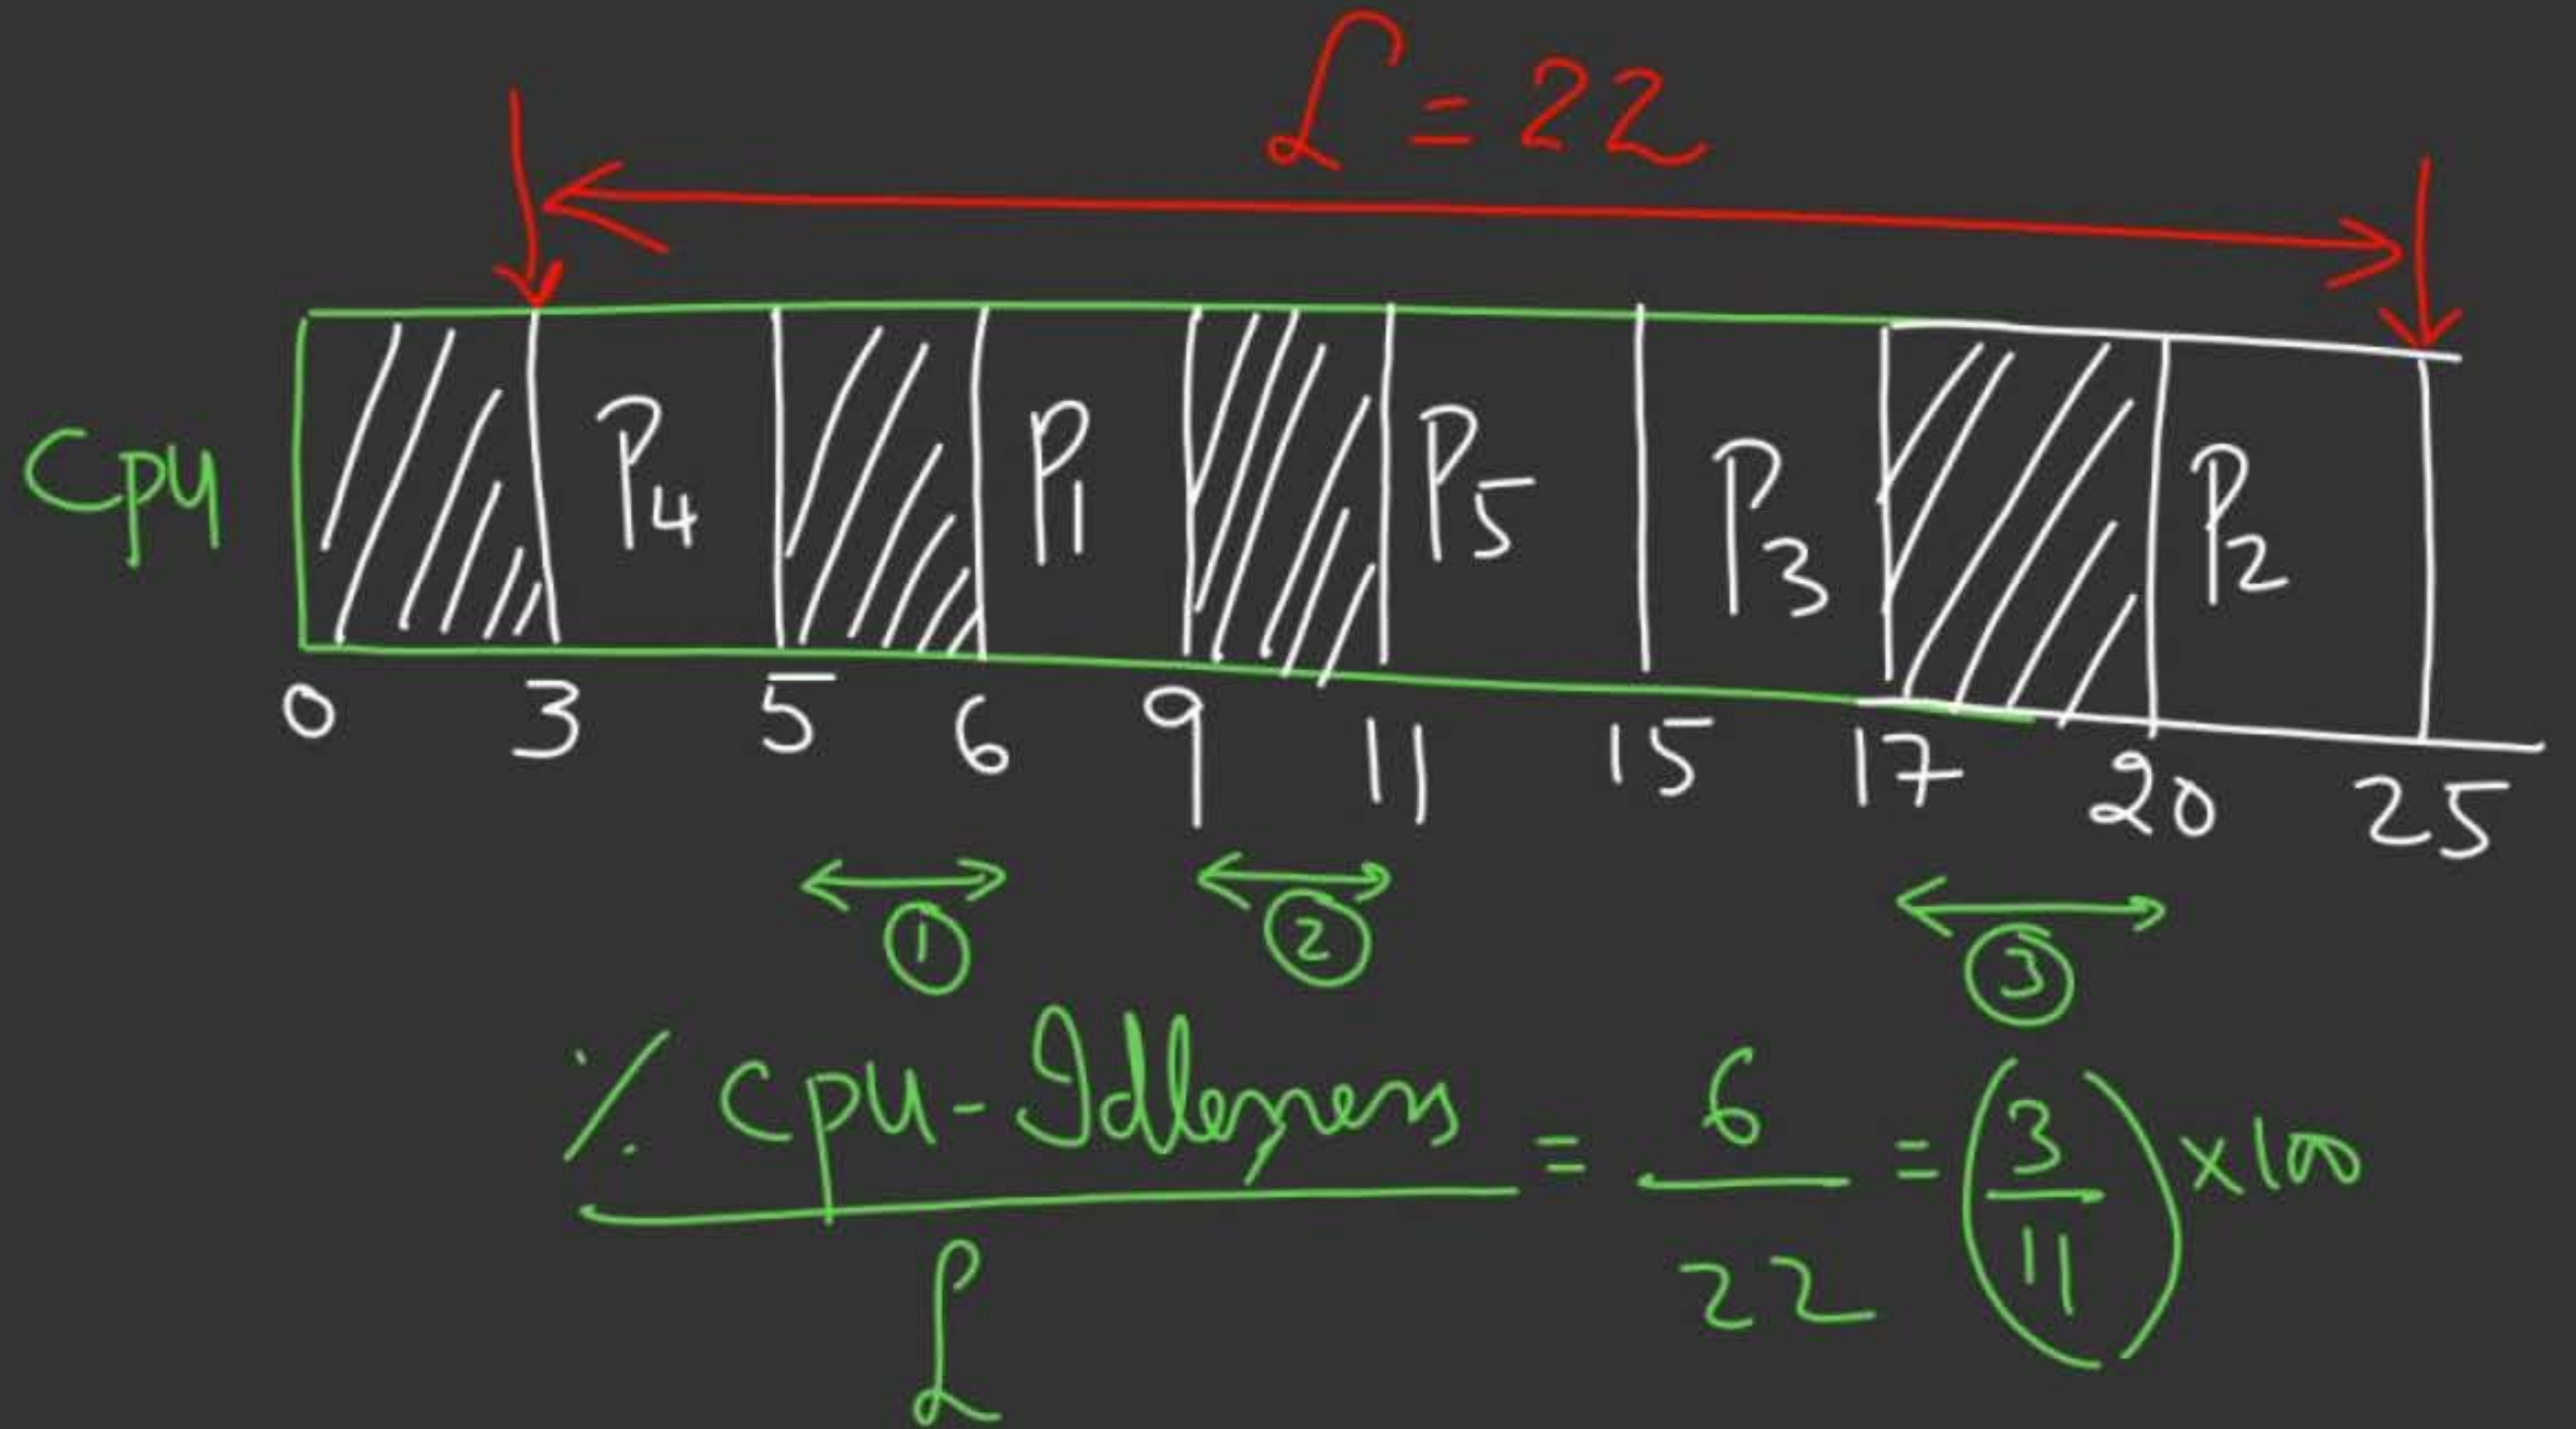 L = 22
Cpu P4 P1 P5 P3 P2
0 3 5 6 9 11 15 17 20 25
1 2 3
% Cpu-Idleness / L = 6/22 = (3/11) x100